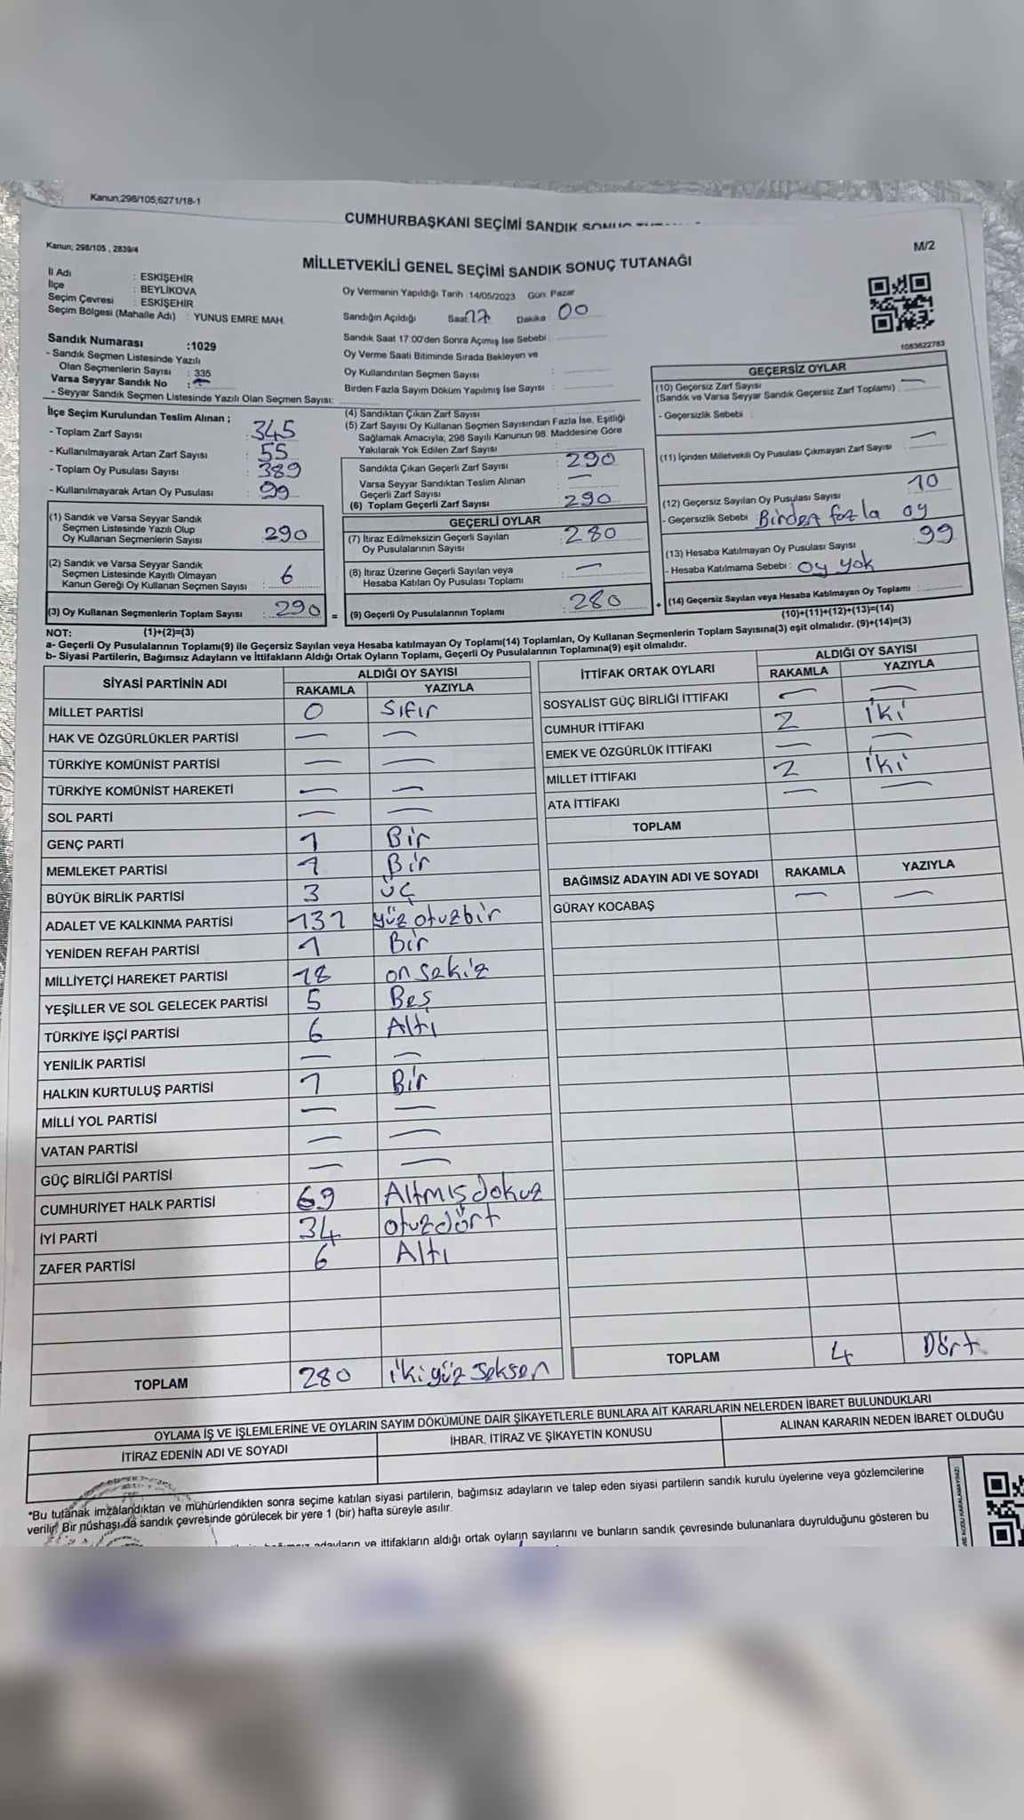 Kanun;298/105,6271/18-1
CUMHURBAŞKANI SEÇİMİ SANDIK SONUÇ
Kanun; 298/105 , 2839/4
M/2
MİLLETVEKİLİ GENEL SEÇİMİ SANDIK SONUÇ TUTANAĞI
İl Adı : ESKİŞEHİR
İlçe : BEYLİKOVA
Seçim Çevresi : ESKİŞEHİR
Seçim Bölgesi (Mahalle Adı) : YUNUS EMRE MAH.
Oy Vermenin Yapıldığı Tarih :14/05/2023 Gün: Pazar
Sandığın Açıldığı Saat 17 Dakika 00
Sandık Saat 17:00'den Sonra Açımış İse Sebebi :
Oy Verme Saati Bitiminde Sırada Bekleyen ve
Oy Kullandırılan Seçmen Sayısı :
Birden Fazla Sayım Döküm Yapılmış İse Sayısı :
1083622783
Sandık Numarası :1029
- Sandık Seçmen Listesinde Yazılı
Olan Seçmenlerin Sayısı : 335
Varsa Seyyar Sandık No : —
- Seyyar Sandık Seçmen Listesinde Yazılı Olan Seçmen Sayısı:
İlçe Seçim Kurulundan Teslim Alınan ;
- Toplam Zarf Sayısı 345
- Kullanılmayarak Artan Zarf Sayısı 55
- Toplam Oy Pusulası Sayısı 389
- Kullanılmayarak Artan Oy Pusulası 99
(1) Sandık ve Varsa Seyyar Sandık
Seçmen Listesinde Yazılı Olup
Oy Kullanan Seçmenlerin Sayısı : 290
(2) Sandık ve Varsa Seyyar Sandık
Seçmen Listesinde Kayıtlı Olmayan
Kanun Gereği Oy Kullanan Seçmen Sayısı : 6
(3) Oy Kullanan Seçmenlerin Toplam Sayısı : 290 =
(1)+(2)=(3)
(4) Sandıktan Çıkan Zarf Sayısı
(5) Zarf Sayısı Oy Kullanan Seçmen Sayısından Fazla İse, Eşitliği
Sağlamak Amacıyla; 298 Sayılı Kanunun 98. Maddesine Göre
Yakılarak Yok Edilen Zarf Sayısı :
Sandıkta Çıkan Geçerli Zarf Sayısı 290
Varsa Seyyar Sandıktan Teslim Alınan
Geçerli Zarf Sayısı —
(6) Toplam Geçerli Zarf Sayısı 290
GEÇERLİ OYLAR
(7) İtiraz Edilmeksizin Geçerli Sayılan
Oy Pusulalarının Sayısı : 280
(8) İtiraz Üzerine Geçerli Sayılan veya
Hesaba Katılan Oy Pusulası Toplamı : —
(9) Geçerli Oy Pusulalarının Toplamı : 280 +
GEÇERSİZ OYLAR
(10) Geçersiz Zarf Sayısı
(Sandık ve Varsa Seyyar Sandık Geçersiz Zarf Toplamı) —
- Geçersizlik Sebebi :
(11) İçinden Milletvekili Oy Pusulası Çıkmayan Zarf Sayısı —
(12) Geçersiz Sayılan Oy Pusulası Sayısı 10
- Geçersizlik Sebebi : Birden fazla oy
(13) Hesaba Katılmayan Oy Pusulası Sayısı 99
- Hesaba Katılmama Sebebi : Oy yok
(14) Geçersiz Sayılan veya Hesaba Katılmayan Oy Toplamı
(10)+(11)+(12)+(13)=(14)
NOT:
a- Geçerli Oy Pusulalarının Toplamı(9) ile Geçersiz Sayılan veya Hesaba katılmayan Oy Toplamı(14) Toplamları, Oy Kullanan Seçmenlerin Toplam Sayısına(3) eşit olmalıdır. (9)+(14)=(3)
b- Siyasi Partilerin, Bağımsız Adayların ve İttifakların Aldığı Ortak Oyların Toplamı, Geçerli Oy Pusulalarının Toplamına(9) eşit olmalıdır.
SİYASİ PARTİNİN ADI ALDIĞI OY SAYISI
RAKAMLA YAZIYLA
MİLLET PARTİSİ 0 Sıfır
HAK VE ÖZGÜRLÜKLER PARTİSİ — —
TÜRKİYE KOMÜNİST PARTİSİ — —
TÜRKİYE KOMÜNİST HAREKETİ — —
SOL PARTİ — —
GENÇ PARTİ 1 Bir
MEMLEKET PARTİSİ 1 Bir
BÜYÜK BİRLİK PARTİSİ 3 üç
ADALET VE KALKINMA PARTİSİ 131 yüz otuzbir
YENİDEN REFAH PARTİSİ 1 Bir
MİLLİYETÇİ HAREKET PARTİSİ 18 on sekiz
YEŞİLLER VE SOL GELECEK PARTİSİ 5 Beş
TÜRKİYE İŞÇİ PARTİSİ 6 Altı
YENİLİK PARTİSİ — —
HALKIN KURTULUŞ PARTİSİ 1 Bir
MİLLİ YOL PARTİSİ — —
VATAN PARTİSİ — —
GÜÇ BİRLİĞİ PARTİSİ — —
CUMHURİYET HALK PARTİSİ 69 Altmış dokuz
İYİ PARTİ 34 otuzdört
ZAFER PARTİSİ 6 Altı
TOPLAM 280 iki yüz seksen
İTTİFAK ORTAK OYLARI ALDIĞI OY SAYISI
RAKAMLA YAZIYLA
SOSYALİST GÜÇ BİRLİĞİ İTTİFAKI — —
CUMHUR İTTİFAKI 2 iki
EMEK VE ÖZGÜRLÜK İTTİFAKI — —
MİLLET İTTİFAKI 2 iki
ATA İTTİFAKI — —
TOPLAM
BAĞIMSIZ ADAYIN ADI VE SOYADI RAKAMLA YAZIYLA
GÜRAY KOCABAŞ — —
TOPLAM 4 Dört
OYLAMA İŞ VE İŞLEMLERİNE VE OYLARIN SAYIM DÖKÜMÜNE DAİR ŞİKAYETLERLE BUNLARA AİT KARARLARIN NELERDEN İBARET BULUNDUKLARI
İTİRAZ EDENİN ADI VE SOYADI İHBAR, İTİRAZ VE ŞİKAYETİN KONUSU ALINAN KARARIN NEDEN İBARET OLDUĞU
*Bu tutanak imzalandıktan ve mühürlendikten sonra seçime katılan siyasi partilerin, bağımsız adayların ve talep eden siyasi partilerin sandık kurulu üyelerine veya gözlemcilerine
verilir. Bir nüshası da sandık çevresinde görülecek bir yere 1 (bir) hafta süreyle asılır.
adayların ve ittifakların aldığı ortak oyların sayılarını ve bunların sandık çevresinde bulunanlara duyrulduğunu gösteren bu